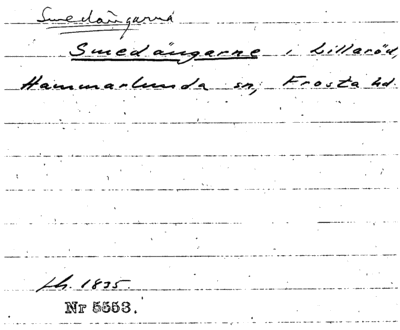 Smedängarna
Smedängarne i Lillaröd,
Hammarlunda sn, Frosta hd.
1835.
Nr 5553.